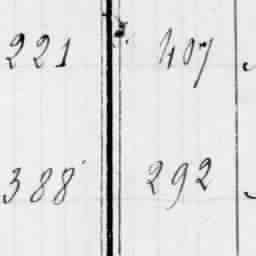 221 407
388 292